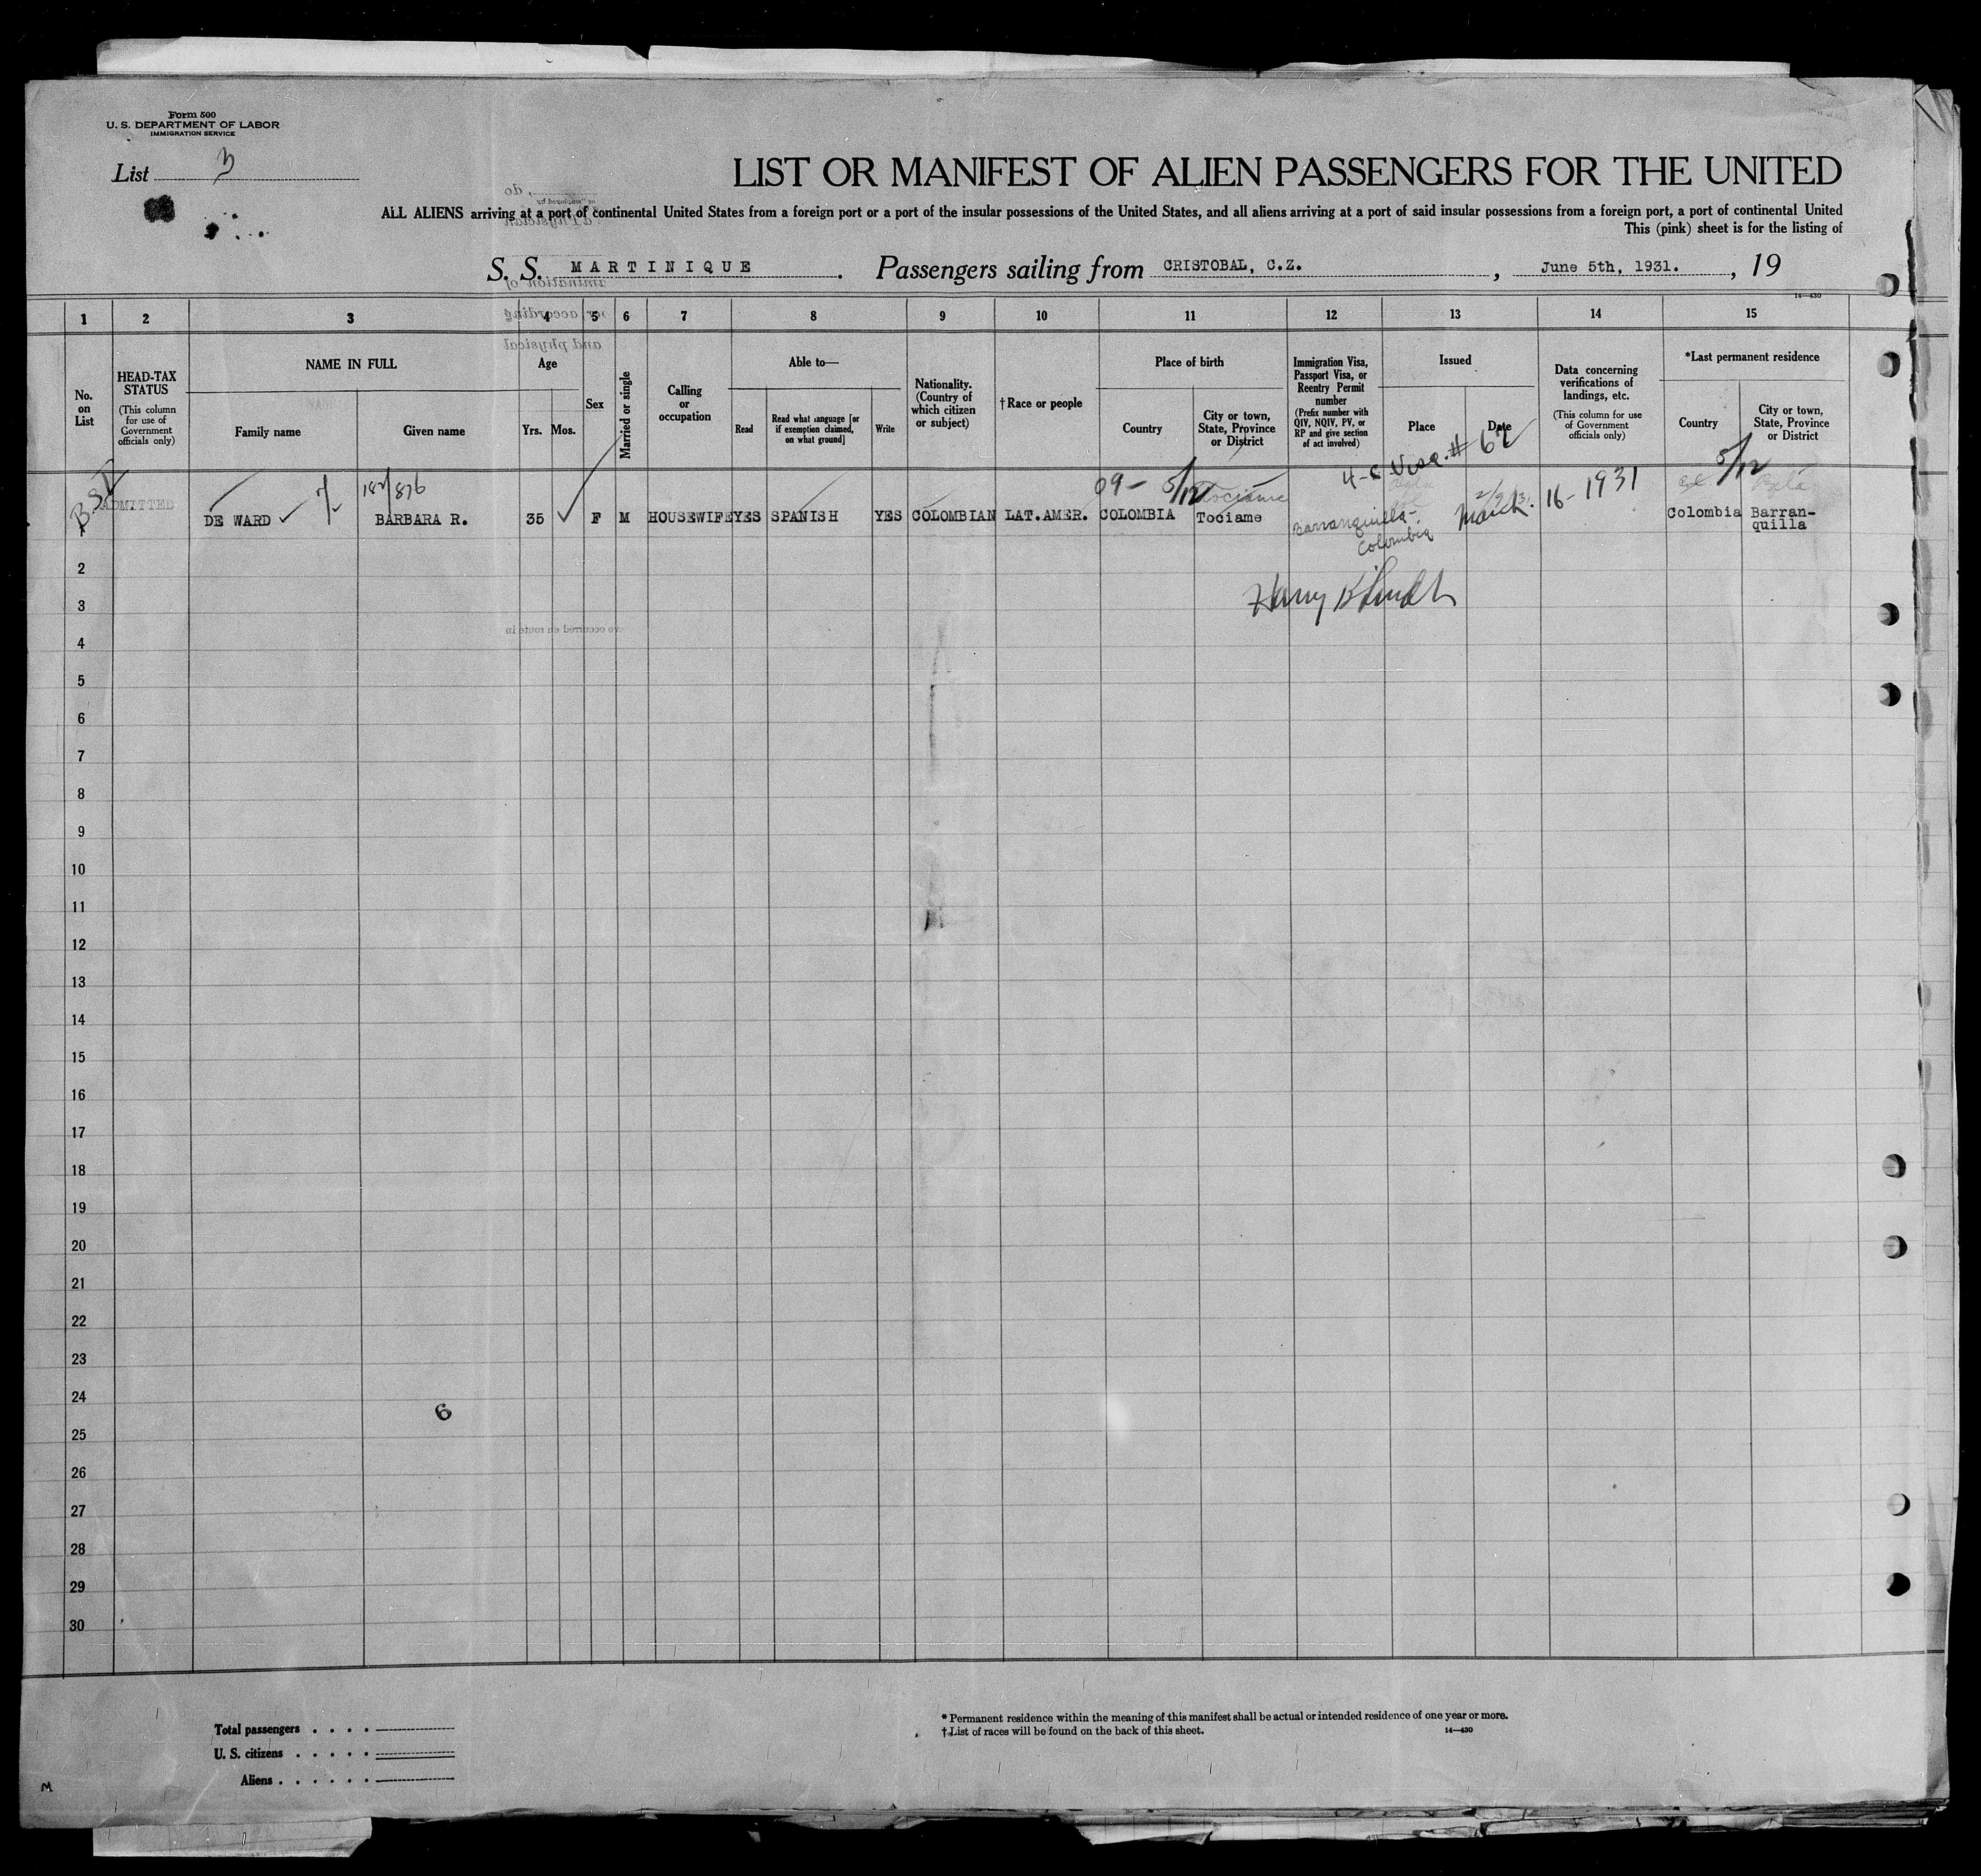 Form 500
U. S. DEPARTMENT OF LABOR
IMMIGRATION SERVICE
List 3
LIST OR MANIFEST OF ALIEN PASSENGERS FOR THE UNITED
ALL ALIENS arriving at a port of continental United States from a foreign port or a port of the insular possessions of the United States, and all aliens arriving at a port of said insular possessions from a foreign port, a port of continental United
This (pink) sheet is for the listing of
S. S. MARTINIQUE. Passengers sailing from CRISTOBAL, C.Z., June 5th, 1931., 19
14—430
1 2 3 4 5 6 7 8 9 10 11 12 13 14 15
No. on List
HEAD-TAX STATUS
(This column for use of Government officials only)
NAME IN FULL
Family name
Given name
Age
Yrs.
Mos.
Sex
Married or single
Calling or occupation
Able to—
Read
Read what language [or if exemption claimed, on what ground]
Write
Nationality. (Country of which citizen or subject)
†Race or people
Place of birth
Country
City or town, State, Province or District
Immigration Visa, Passport Visa, or Reentry Permit number
(Prefix number with QIV, NQIV, PV, or RP and give section of act involved)
Issued
Place
Date
Data concerning verifications of landings, etc.
(This column for use of Government officials only)
*Last permanent residence
Country
City or town, State, Province or District
4-c Visa # 62
09- 5/12
5/12
BSI
ADMITTED
1 DE WARD BARBARA R. 35 F M HOUSEWIFE YES SPANISH YES COLOMBIAN LAT.AMER. COLOMBIA Tociame Barranquilla- Colombia March 16-1931 Colombia Barran-
quilla
2
3
4
5
6
7
8
9
10
11
12
13
14
15
16
17
18
19
20
21
22
23
24
6
25
26
27
28
29
30
Total passengers
U. S. citizens
Aliens
* Permanent residence within the meaning of this manifest shall be actual or intended residence of one year or more.
† List of races will be found on the back of this sheet.
14—430
M